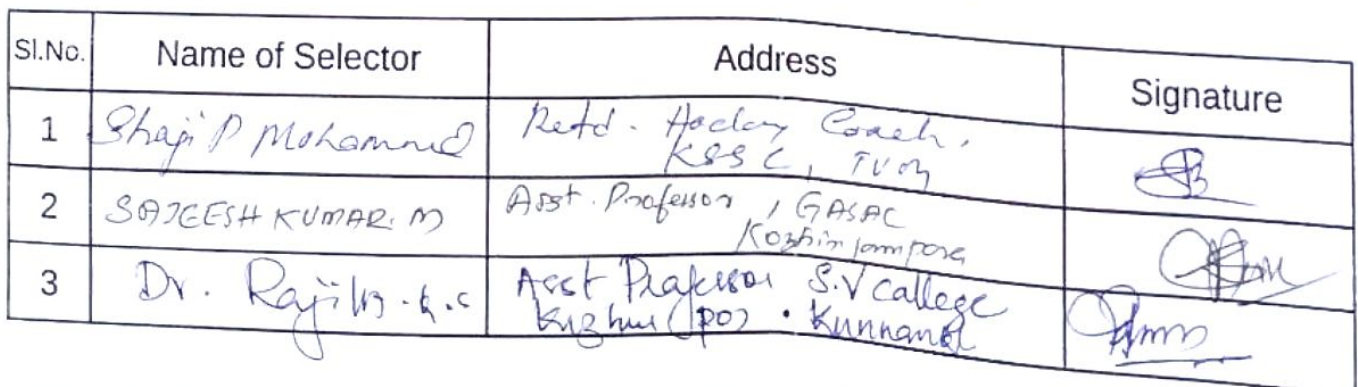 Sl.No. Name of Selector Address Signature
1 Shaji P Mohammed Retd. Hockey Coach,
KSSC, TVM
2 SAJEESH KUMAR. M Asst. Professor, GASAC
Kozhinjampara
3 Dr. Asst Professor S.V College
(PO).